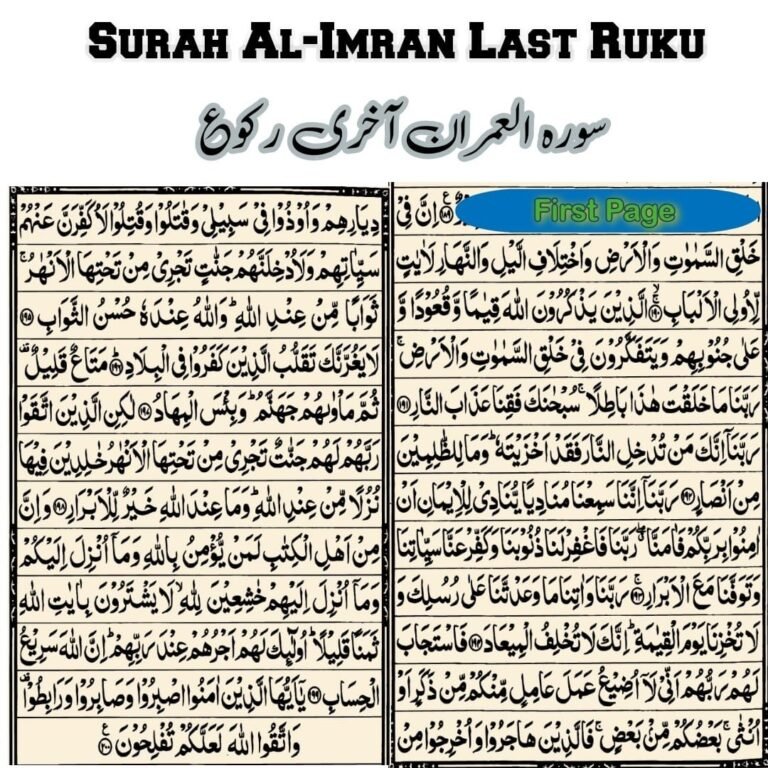 SURAH AL-IMRAN LAST RUKU
سورہ العمران آخری رکوع
First Page
اِنَّ فِیْ
خَلْقِ السَّمٰوٰتِ وَالْاَرْضِ وَاخْتِلَافِ الَّیْلِ وَالنَّهَارِ لَاٰیٰتٍ
لِّاُولِی الْاَلْبَابِ ۙ۱۹۰ الَّذِیْنَ یَذْكُرُوْنَ اللّٰهَ قِیٰمًا وَّقُعُوْدًا وَّ
عَلٰی جُنُوْبِهِمْ وَیَتَفَكَّرُوْنَ فِیْ خَلْقِ السَّمٰوٰتِ وَالْاَرْضِ ۚ
رَبَّنَا مَا خَلَقْتَ هٰذَا بَاطِلًا ۚ سُبْحٰنَكَ فَقِنَا عَذَابَ النَّارِ ۱۹۱
رَبَّنَاۤ اِنَّكَ مَنْ تُدْخِلِ النَّارَ فَقَدْ اَخْزَیْتَهٗ ؕ وَمَا لِلظّٰلِمِیْنَ
مِنْ اَنْصَارٍ ۱۹۲ رَبَّنَاۤ اِنَّنَا سَمِعْنَا مُنَادِیًا یُّنَادِیْ لِلْاِیْمَانِ اَنْ
اٰمِنُوْا بِرَبِّكُمْ فَاٰمَنَّا ۖۗ رَبَّنَا فَاغْفِرْ لَنَا ذُنُوْبَنَا وَكَفِّرْ عَنَّا سَیِّاٰتِنَا
وَتَوَفَّنَا مَعَ الْاَبْرَارِ ۚ۱۹۳ رَبَّنَا وَاٰتِنَا مَا وَعَدْتَّنَا عَلٰی رُسُلِكَ وَ
لَا تُخْزِنَا یَوْمَ الْقِیٰمَةِ ؕ اِنَّكَ لَا تُخْلِفُ الْمِیْعَادَ ۱۹۴ فَاسْتَجَابَ
لَهُمْ رَبُّهُمْ اَنِّیْ لَاۤ اُضِیْعُ عَمَلَ عَامِلٍ مِّنْكُمْ مِّنْ ذَكَرٍ اَوْ
اُنْثٰی ۚ بَعْضُكُمْ مِّنْۢ بَعْضٍ ۚ فَالَّذِیْنَ هَاجَرُوْا وَاُخْرِجُوْا مِنْ
دِیَارِهِمْ وَاُوْذُوْا فِیْ سَبِیْلِیْ وَقٰتَلُوْا وَقُتِلُوْا لَاُكَفِّرَنَّ عَنْهُمْ
سَیِّاٰتِهِمْ وَلَاُدْخِلَنَّهُمْ جَنّٰتٍ تَجْرِیْ مِنْ تَحْتِهَا الْاَنْهٰرُ ۚ
ثَوَابًا مِّنْ عِنْدِ اللّٰهِ ؕ وَاللّٰهُ عِنْدَهٗ حُسْنُ الثَّوَابِ ۱۹۵
لَا یَغُرَّنَّكَ تَقَلُّبُ الَّذِیْنَ كَفَرُوْا فِی الْبِلَادِ ؕ۱۹۶ مَتَاعٌ قَلِیْلٌ ۟
ثُمَّ مَاْوٰىهُمْ جَهَنَّمُ ؕ وَبِئْسَ الْمِهَادُ ۱۹۷ لٰكِنِ الَّذِیْنَ اتَّقَوْا
رَبَّهُمْ لَهُمْ جَنّٰتٌ تَجْرِیْ مِنْ تَحْتِهَا الْاَنْهٰرُ خٰلِدِیْنَ فِیْهَا
نُزُلًا مِّنْ عِنْدِ اللّٰهِ ؕ وَمَا عِنْدَ اللّٰهِ خَیْرٌ لِّلْاَبْرَارِ ۱۹۸ وَاِنَّ
مِنْ اَهْلِ الْكِتٰبِ لَمَنْ یُّؤْمِنُ بِاللّٰهِ وَمَاۤ اُنْزِلَ اِلَیْكُمْ
وَمَاۤ اُنْزِلَ اِلَیْهِمْ خٰشِعِیْنَ لِلّٰهِ ۙ لَا یَشْتَرُوْنَ بِاٰیٰتِ اللّٰهِ
ثَمَنًا قَلِیْلًا ؕ اُولٰٓىِٕكَ لَهُمْ اَجْرُهُمْ عِنْدَ رَبِّهِمْ ؕ اِنَّ اللّٰهَ سَرِیْعُ
الْحِسَابِ ۱۹۹ یٰۤاَیُّهَا الَّذِیْنَ اٰمَنُوا اصْبِرُوْا وَصَابِرُوْا وَرَابِطُوْا ۟
وَاتَّقُوا اللّٰهَ لَعَلَّكُمْ تُفْلِحُوْنَ ۲۰۰ ع